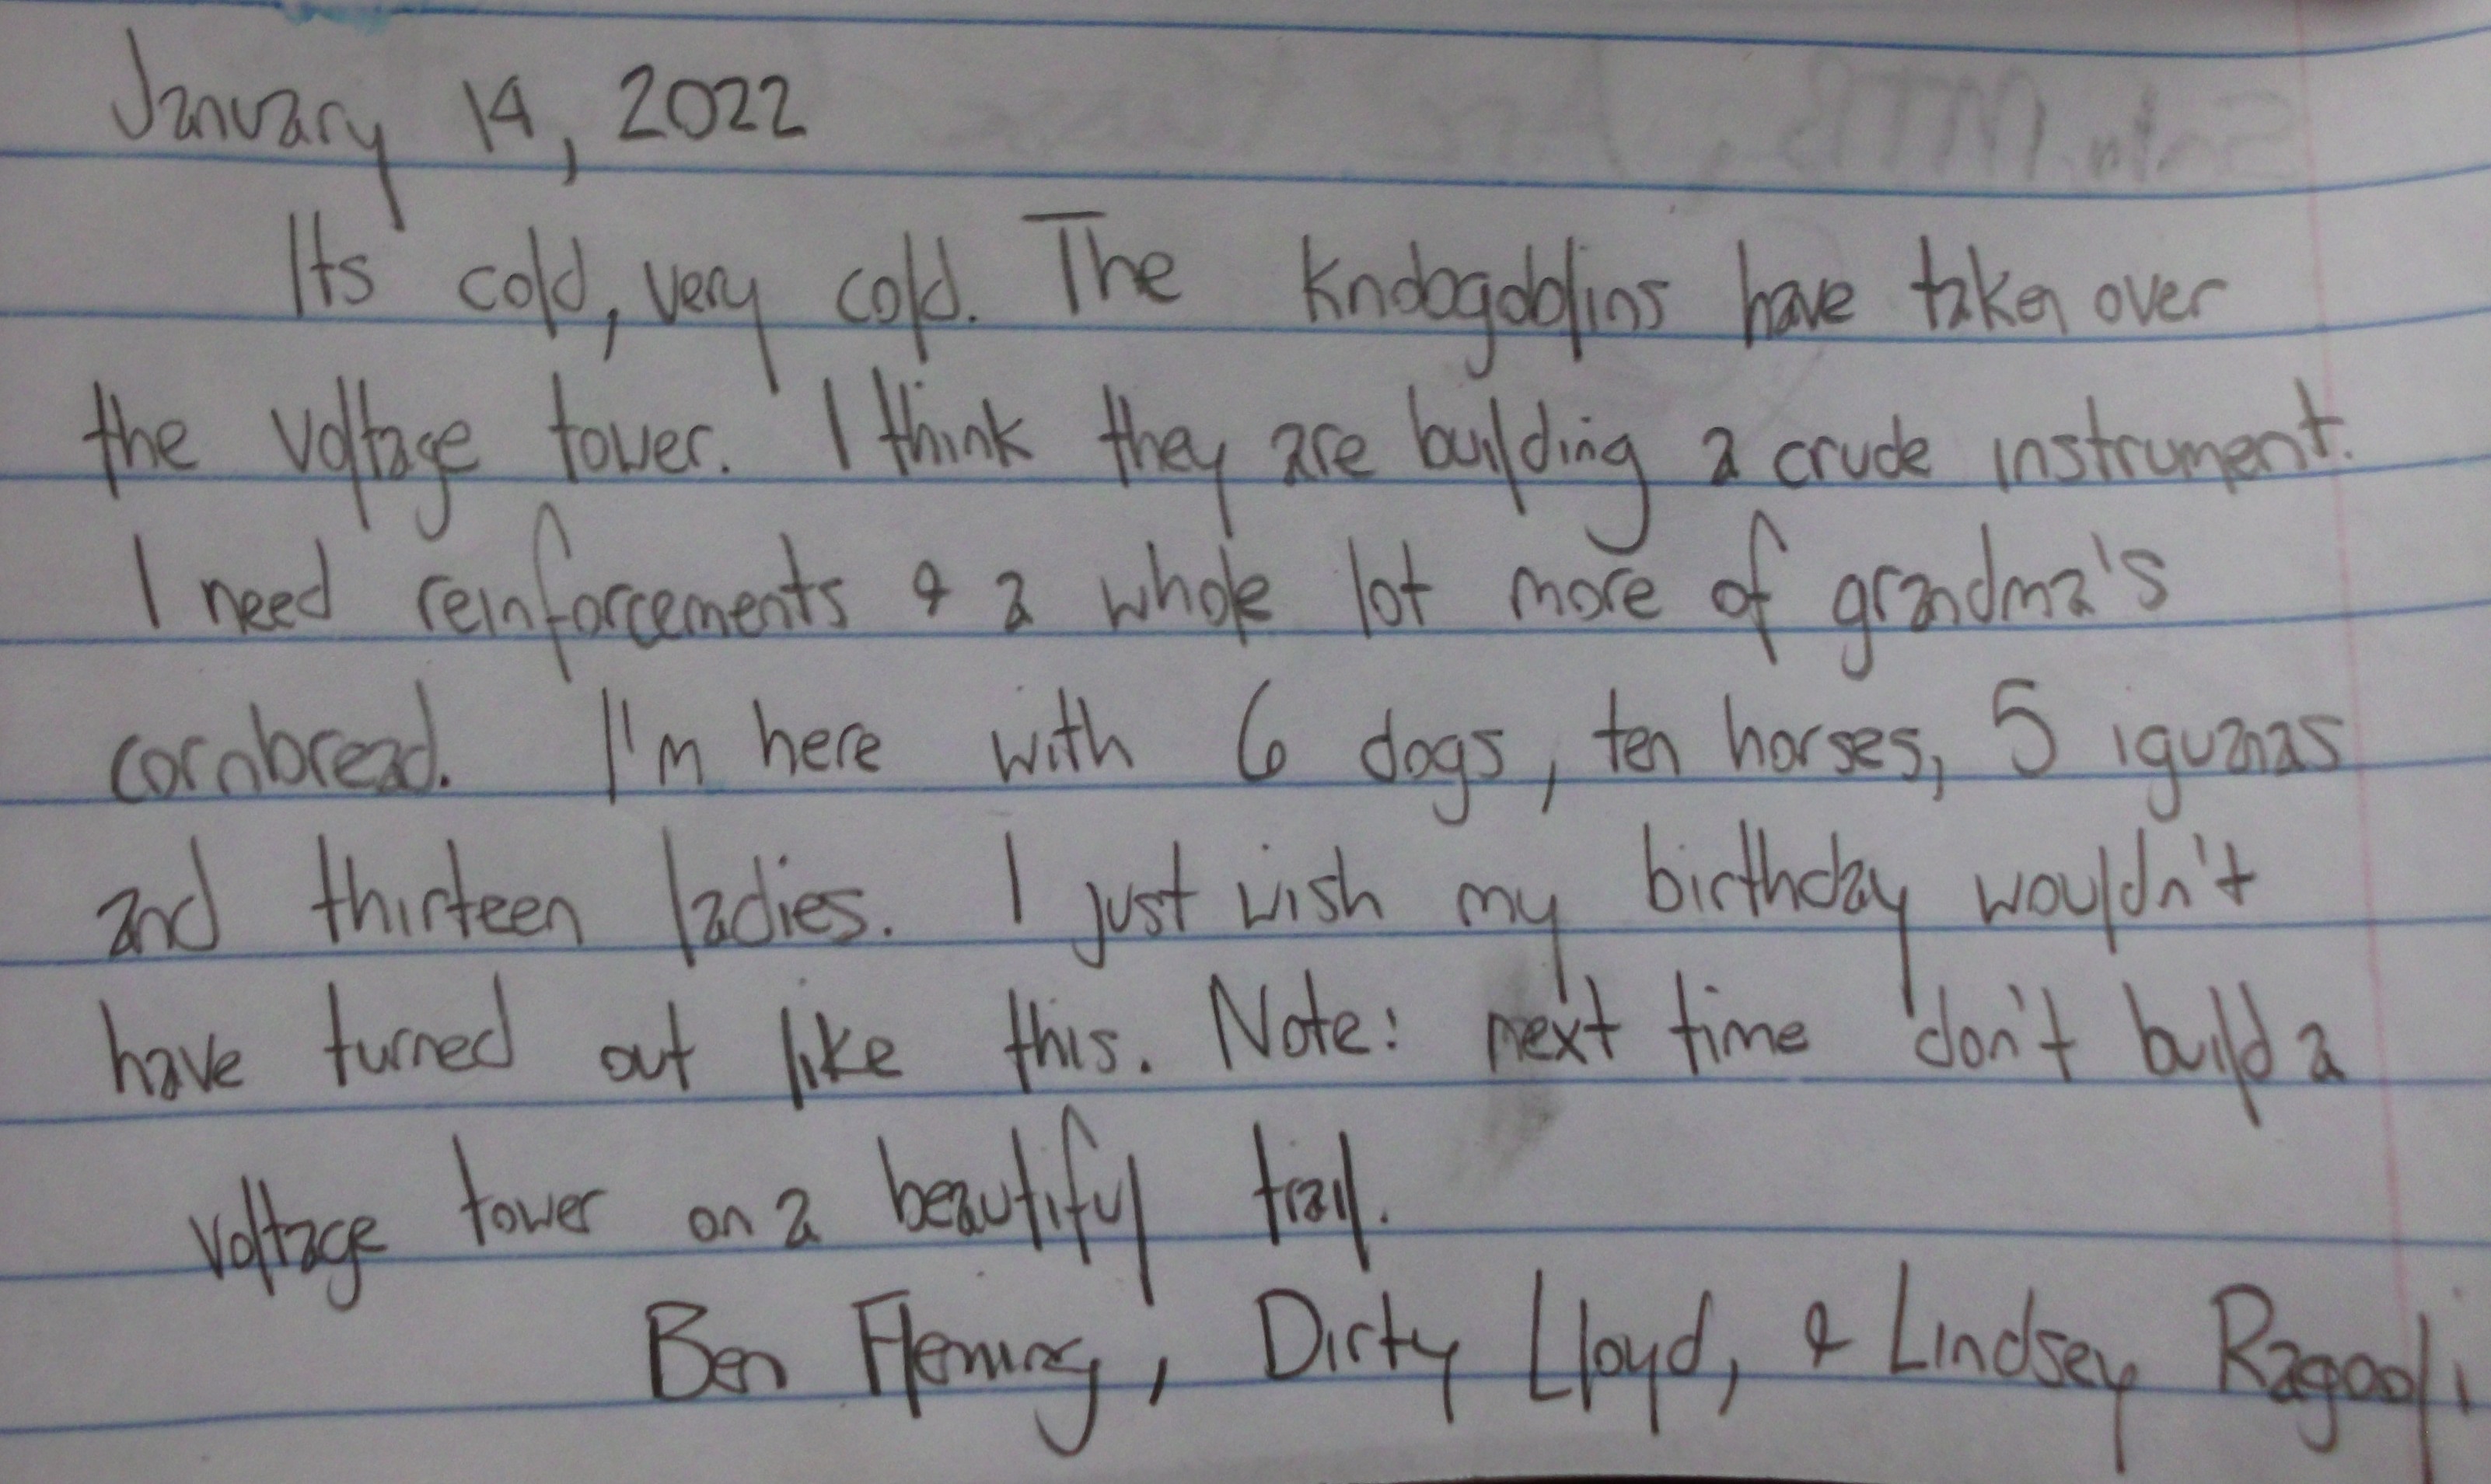 January 14, 2022
Its cold, very cold. The Kndogoblins have taken over
the voltage tower. I think they are building a crude instrument.
I need reinforcements & a whole lot more of grandma's
cornbread. I'm here with 6 dogs, ten horses, 5 iguanas
and thirteen ladies. I just wish my birthday wouldn't
have turned out like this. Note: next time don't build a
voltage tower on a beautiful trail.
Ben Fleming, Dirty Lloyd, & Lindsey Ragooli